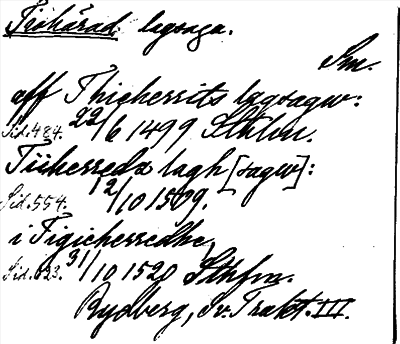 Tiohärad lagsaga.
Sm.
aff Thiçherrits lagsagw:
Sid. 484. 22/6 1499 Sthlm.
Tiiherredx lagh [sagw]:
Sid. 554. 12/10 1509.
i Tigicherredhe,
Sid. 623. 31/10 1520 Sthlm.
Rydberg, Sv. Trakt. III.